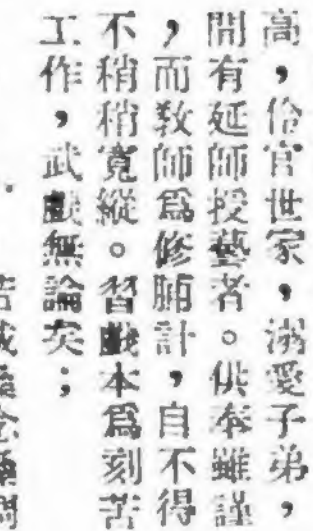 高，伶官世家，溺愛子弟，
間有延師授藝者。供奉雖謹
，而敎師爲修脯計，自不得
不稍稍寬縱。習戲本爲刻苦
工作，武戲無論矣；